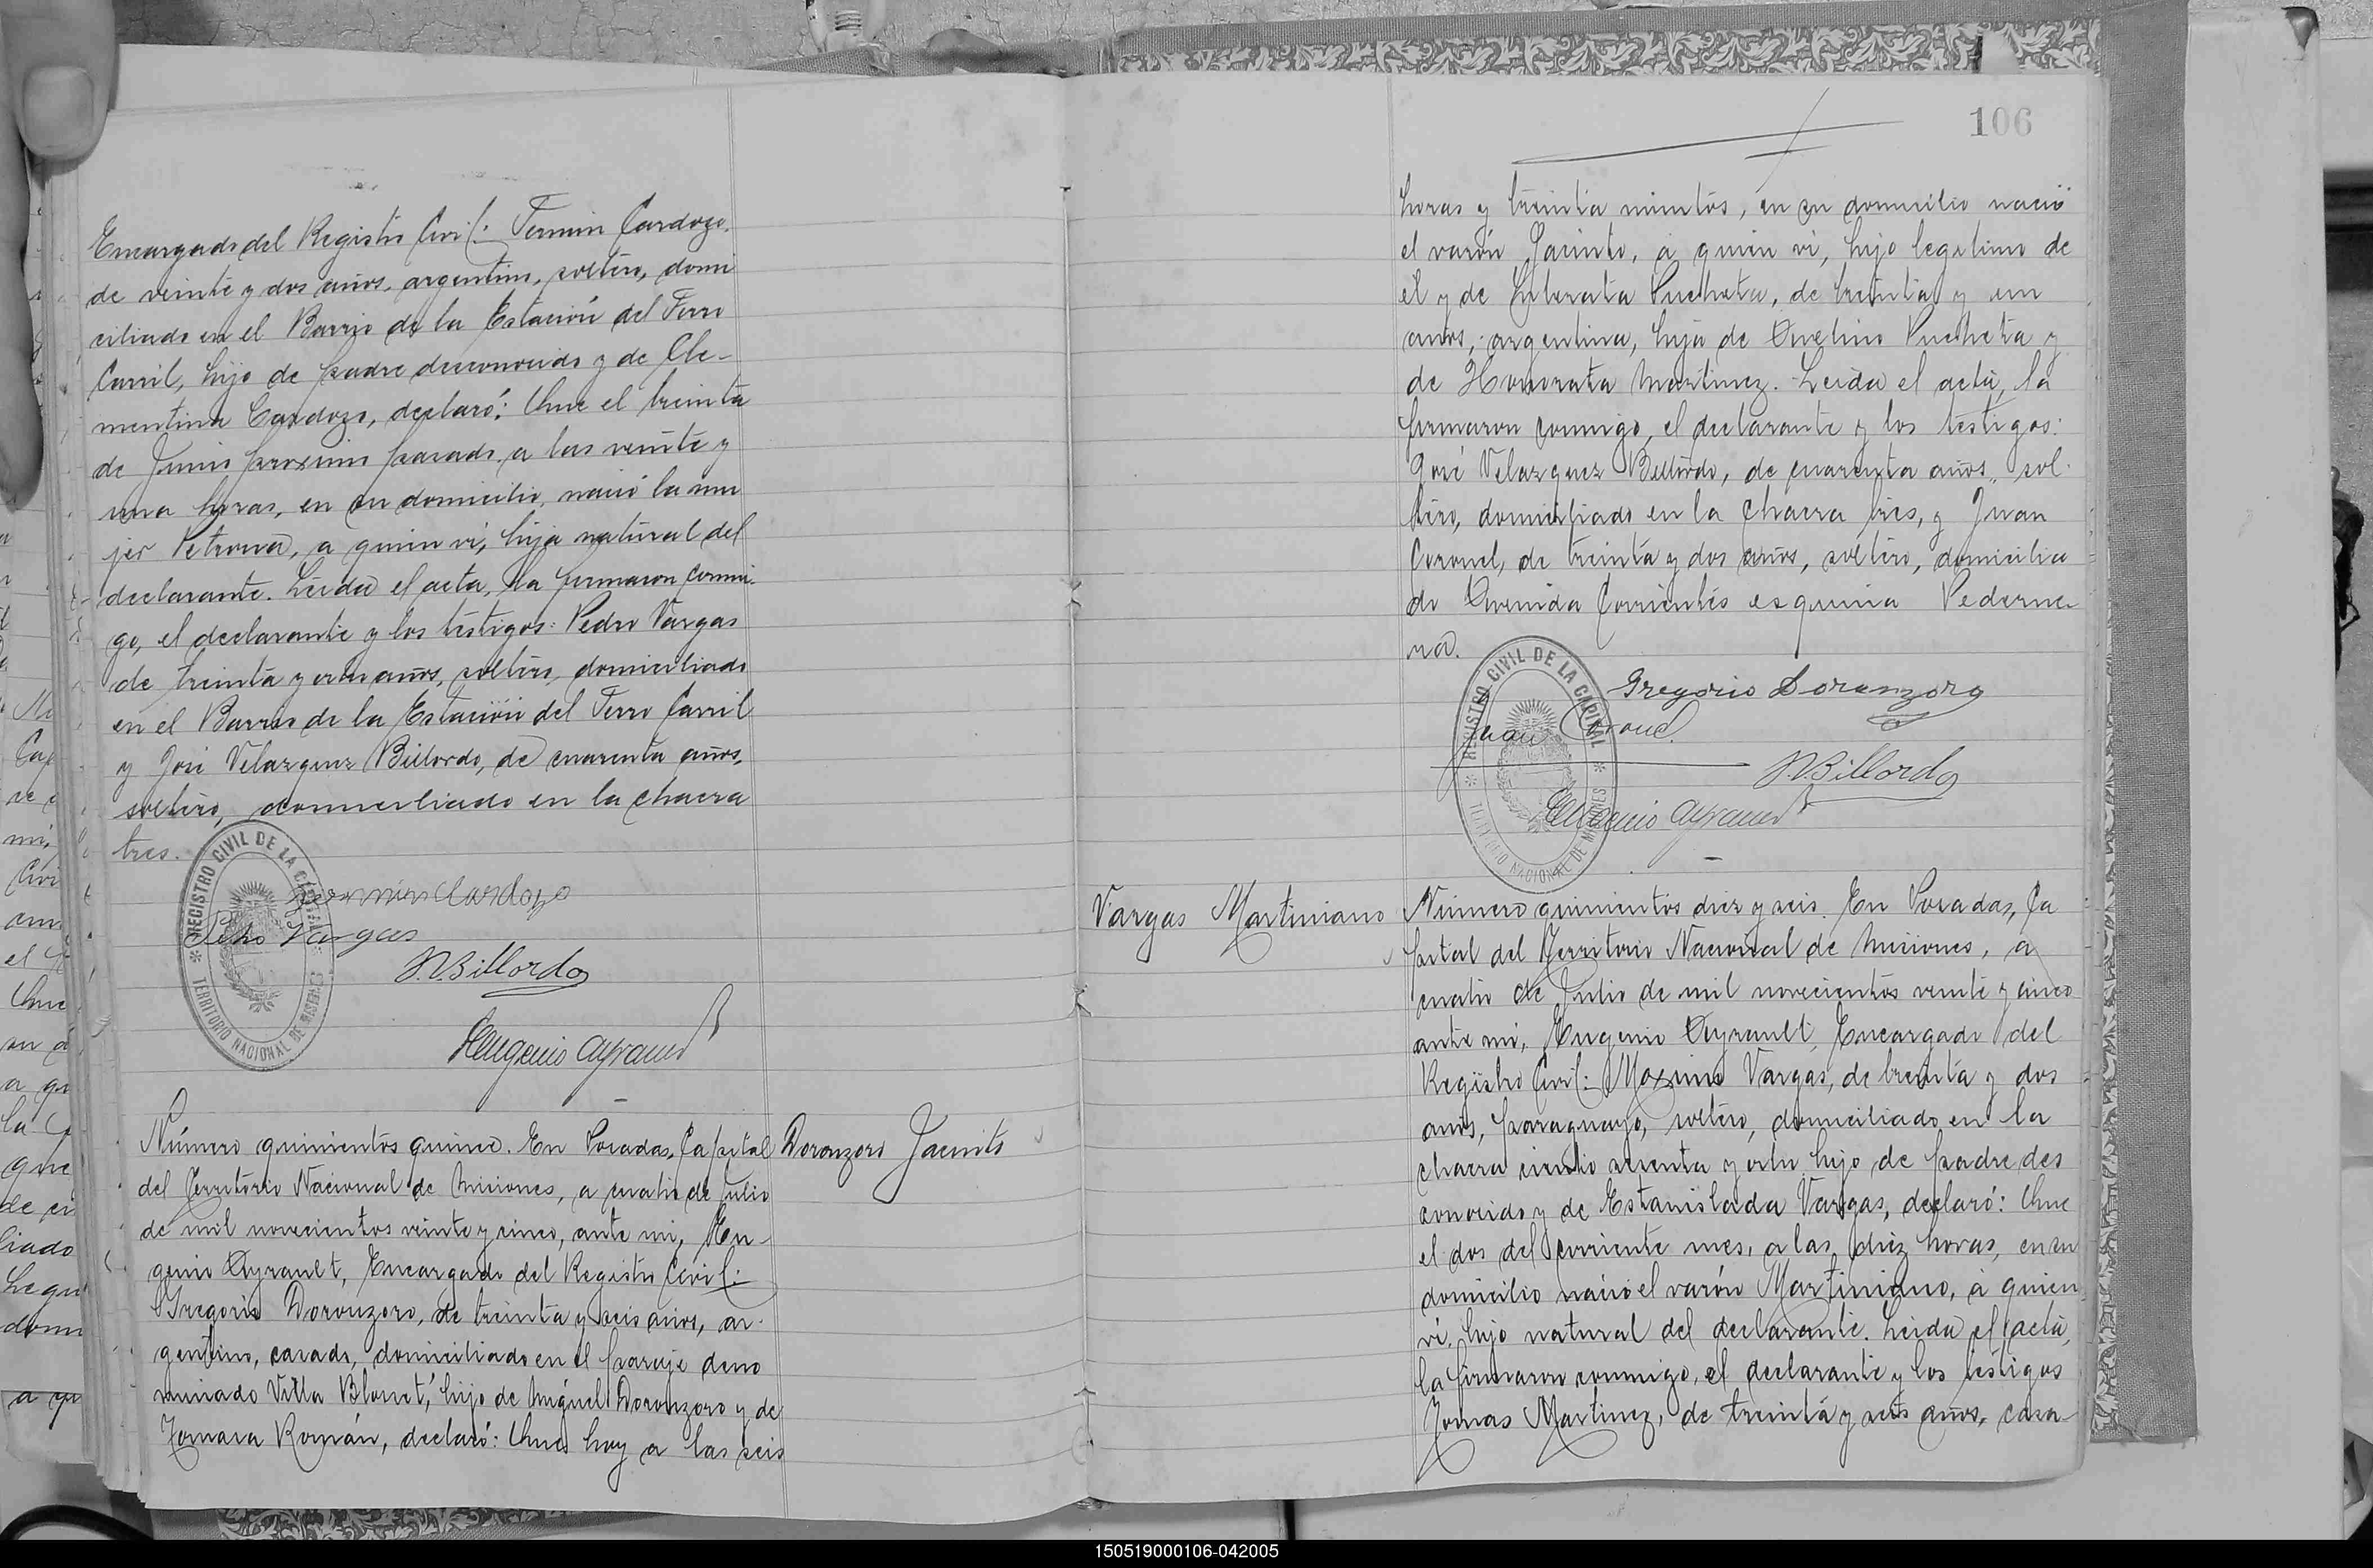 Encargado del Registro Civil: Fermin Cardozo,
de veinte y dos años, argentino, soltero, domi
ciliado en el Barrio de la Estación del Ferro
Carril, hijo de padre desconocido y de Cle-
mentina Cardozo, declaró: Que el treinta
de Junio proximo pasado, a las veinte y
una horas, en su domicilio, nació la mu
jer Petrona, a quien vi, hija natural del
declarante. Leida el acta, la firmaron conmi-
go, el declarante y los testigos: Pedro Vargas
de treinta y ocho años, soltero, domiciliado
en el Barrio de la Estación del Ferro Carril
y José Velazquez Billordo, de cuarenta años,
soltero, domiciliado en la chacra
tres.
REGISTRO CIVIL DE LA CAPITAL
TERRITORIO NACIONAL DE MISIONES
Fermin Cardozo
Pedro Vargas
J.V. Billordo
Eugenio Ayrault
Número quinientos quince. En Posadas, Capital
Doronzoro Jacinto
del Territorio Nacional de Misiones, a cuatro de Julio
de mil novecientos veinte y cinco, ante mi, Eu-
genio Ayrault, Encargado del Registro Civil:
Gregorio Doronzoro, de treinta y seis años, ar-
gentino, casado, domiciliado en el paraje deno
minado Villa Blosset, hijo de Miguel Doronzoro y de
Tomasa Román, declaró: Que hoy a las seis
106
horas y treinta minutos, en su domicilio nació
el varón Jacinto, a quien vi, hijo legitimo de
él y de Liberata Pucheta, de treinta y un
años, argentina, hija de Avelino Pucheta y
de Honorata Martinez. Leida el acta, la
firmaron conmigo, el declarante y los testigos:
José Velazquez Billordo, de cuarenta años, sol-
tero, domiciliado en la chacra tres, y Juan
Coronel, de treinta y dos años, soltero, domicilia
do Avenida Corrientes esquina Pederne
ra.
REGISTRO CIVIL DE LA CAPITAL
TERRITORIO NACIONAL DE MISIONES
Gregorio Doranzoro
Juan Coronel
J.V. Billordo
Eugenio Ayrault
Vargas Martiniano
Número quinientos diez y seis. En Posadas, Ca
pital del Territorio Nacional de Misiones, a
cuatro de Julio de mil novecientos veinte y cinco
ante mi, Eugenio Ayrault, Encargado del
Registro Civil: Maximo Vargas, de treinta y dos
años, paraguayo, soltero, domiciliado en la
chacra ciento sesenta y ocho, hijo de padre des
conocido y de Estanislada Vargas, declaró: Que
el dos del corriente mes, a las diez horas, en su
domicilio nació el varón Martiniano, a quien
vi, hijo natural del declarante. Leida el acta,
la firmaron conmigo, el declarante y los testigos
Tomas Martinez, de treinta y seis años, casa-
150519000106-042005